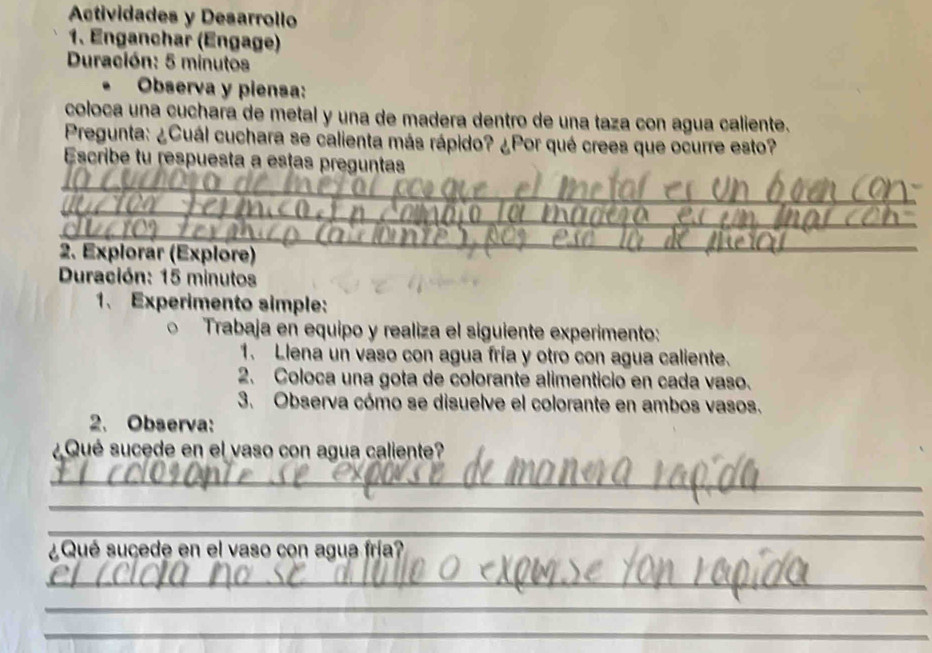 Actividades y Desarrollo
1. Enganchar (Engage)
Duración: 5 minutos
• Observa y piensa:
coloca una cuchara de metal y una de madera dentro de una taza con agua caliente.
Pregunta: ¿Cuál cuchara se calienta más rápido? ¿Por qué crees que ocurre esto?
Escribe tu respuesta a estas preguntas
la cuchara de metal el metal es un con-
termico. la madera es un mal con-
ductor termico por eso la de metal
2. Explorar (Explore)
Duración: 15 minutos
1. Experimento simple:
o Trabaja en equipo y realiza el siguiente experimento:
1. Llena un vaso con agua fría y otro con agua caliente.
2. Coloca una gota de colorante alimenticio en cada vaso.
3. Observa cómo se disuelve el colorante en ambos vasos.
2. Observa:
¿Qué sucede en el vaso con agua caliente?
El colorante se de manera rapida
¿Qué sucede en el vaso con agua fría?
el no se o tan rapida